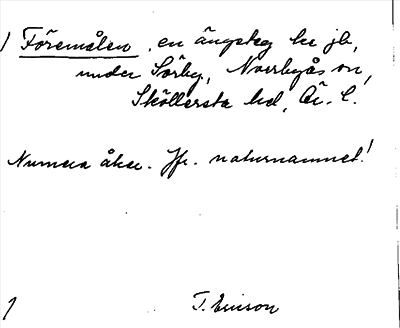 ) Föremålen, en ängsteg kr jb,
under Sörby, Norrbyås sn,
Sköllersta hd, Ör. l.
Numera åker. Jfr. naturnamnet!
T. Ericson